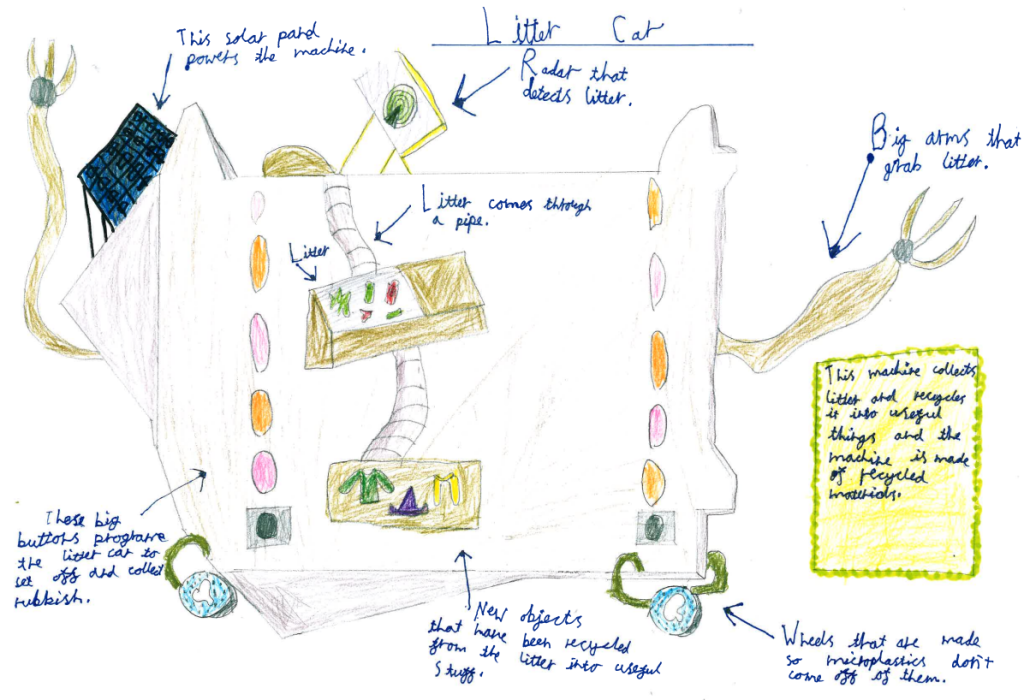 Litter Car
This solar panel
powers the machine.
Radar that
detects litter.
Big arms that
grab litter.
Litter comes through
a pipe.
Litter
This machine collects
litter and recycles
it into useful
things and the
machine is made
of recycled
materials.
These big
buttons programe
the litter car to
set off and collect
rubbish.
New objects
that have been recycled
from the litter into useful
stuff.
Wheels that are made
so microplastics don't
come off of them.